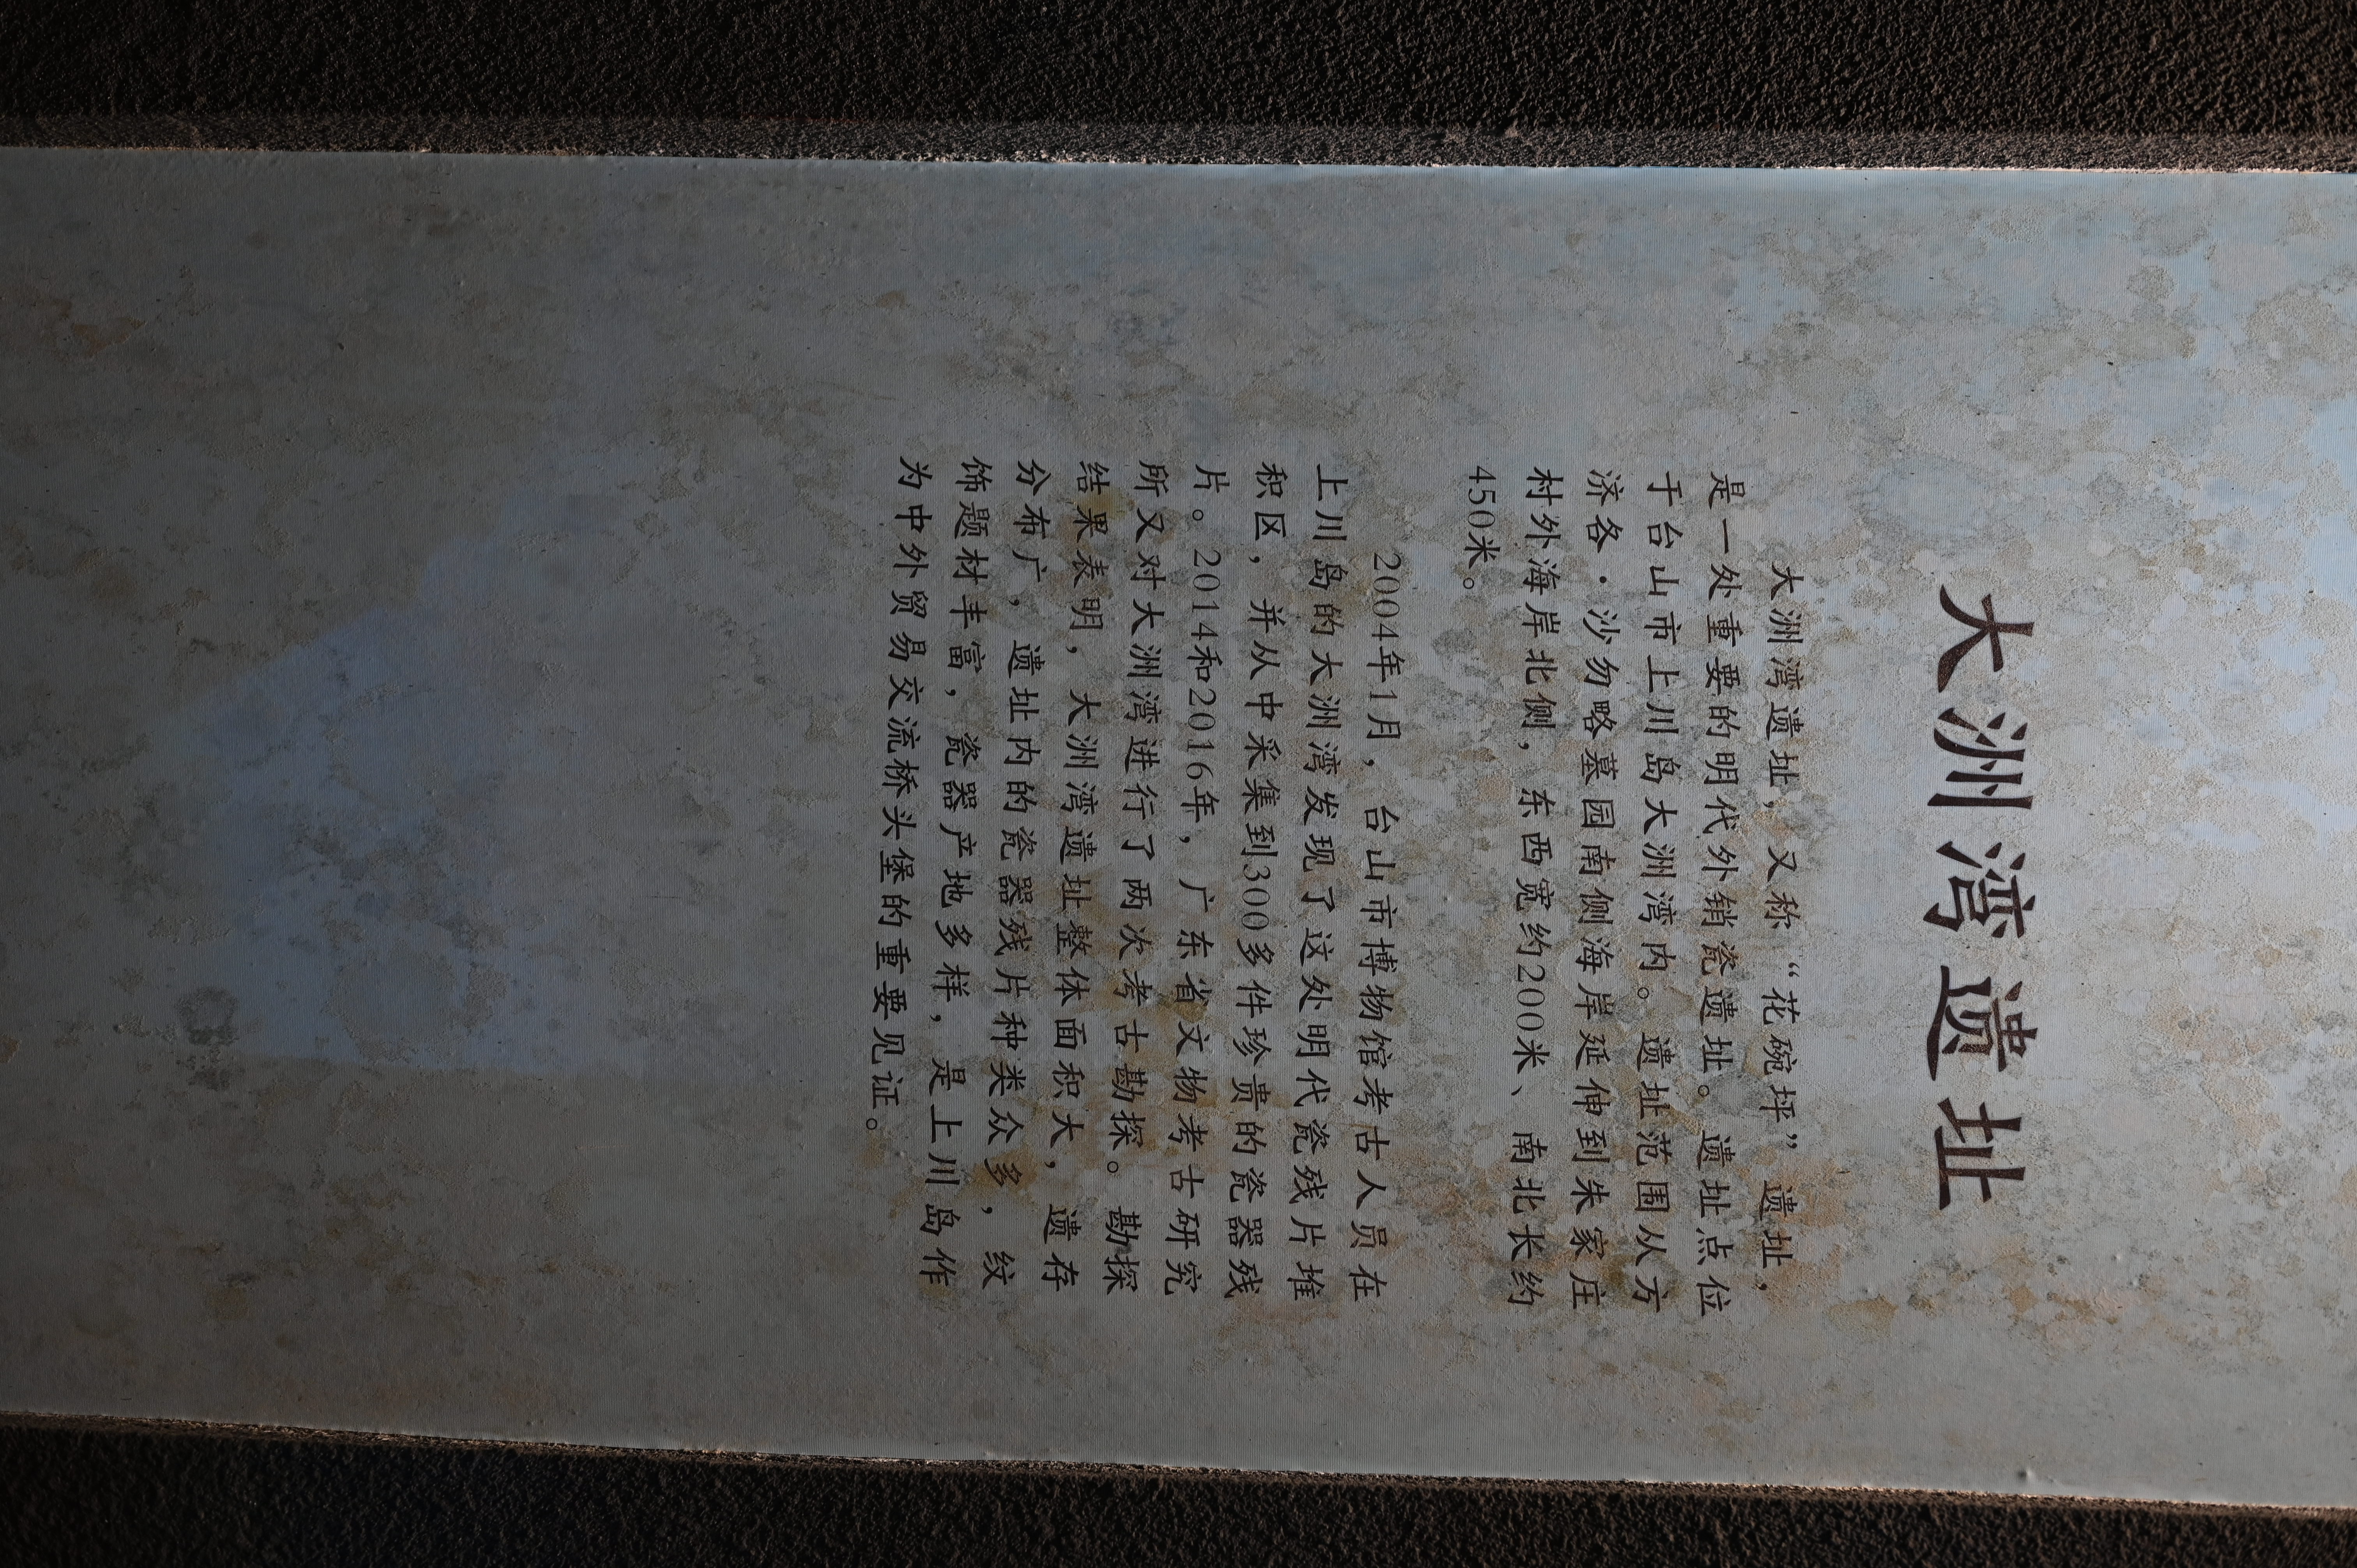 大洲湾遗址
大洲湾遗址，又称“花碗坪”遗址，
是一处重要的明代外销瓷遗址。遗址点位
于台山市上川岛大洲湾内。遗址范围从方
济各·沙勿略墓园南侧海岸延伸到朱家庄
村外海岸北侧，东西宽约200米、南北长约
450米。
2004年1月，台山市博物馆考古人员在
上川岛的大洲湾发现了这处明代瓷残片堆
积区，并从中采集到300多件珍贵的瓷器残
片。2014和2016年，广东省文物考古研究
所又对大洲湾进行了两次考古勘探。勘探
结果表明，大洲湾遗址整体面积大，遗存
分布广，遗址内的瓷器残片种类众多，纹
饰题材丰富，瓷器产地多样，是上川岛作
为中外贸易交流桥头堡的重要见证。